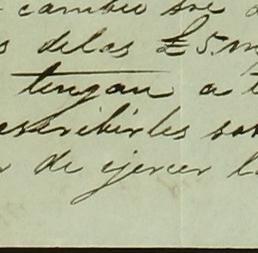 cambio sre
delas £5.m
tengan a t
escribirles so
de ejercer l